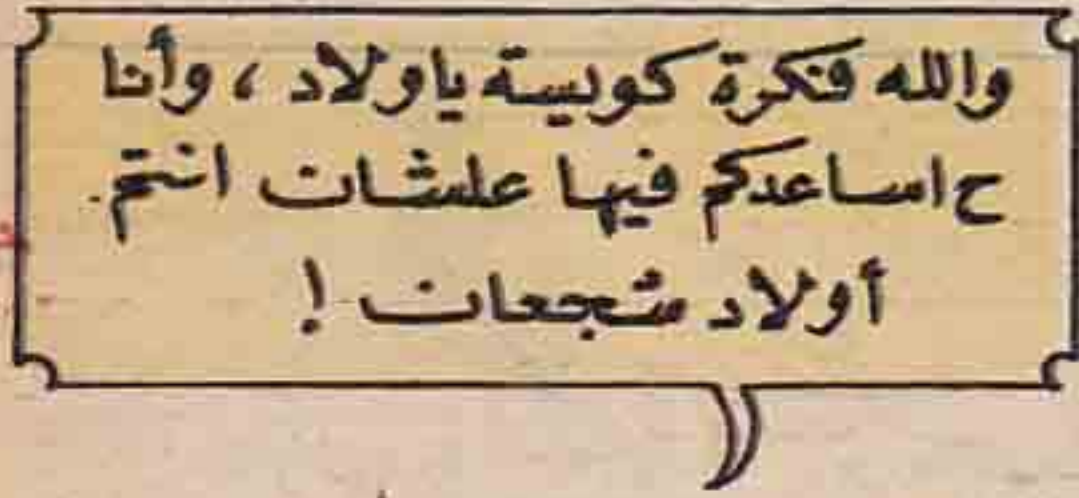 والله فكرة كويسة ياولاد ، وأنا
ح اساعدكم فيها علشان انتم
أولاد شجعان !